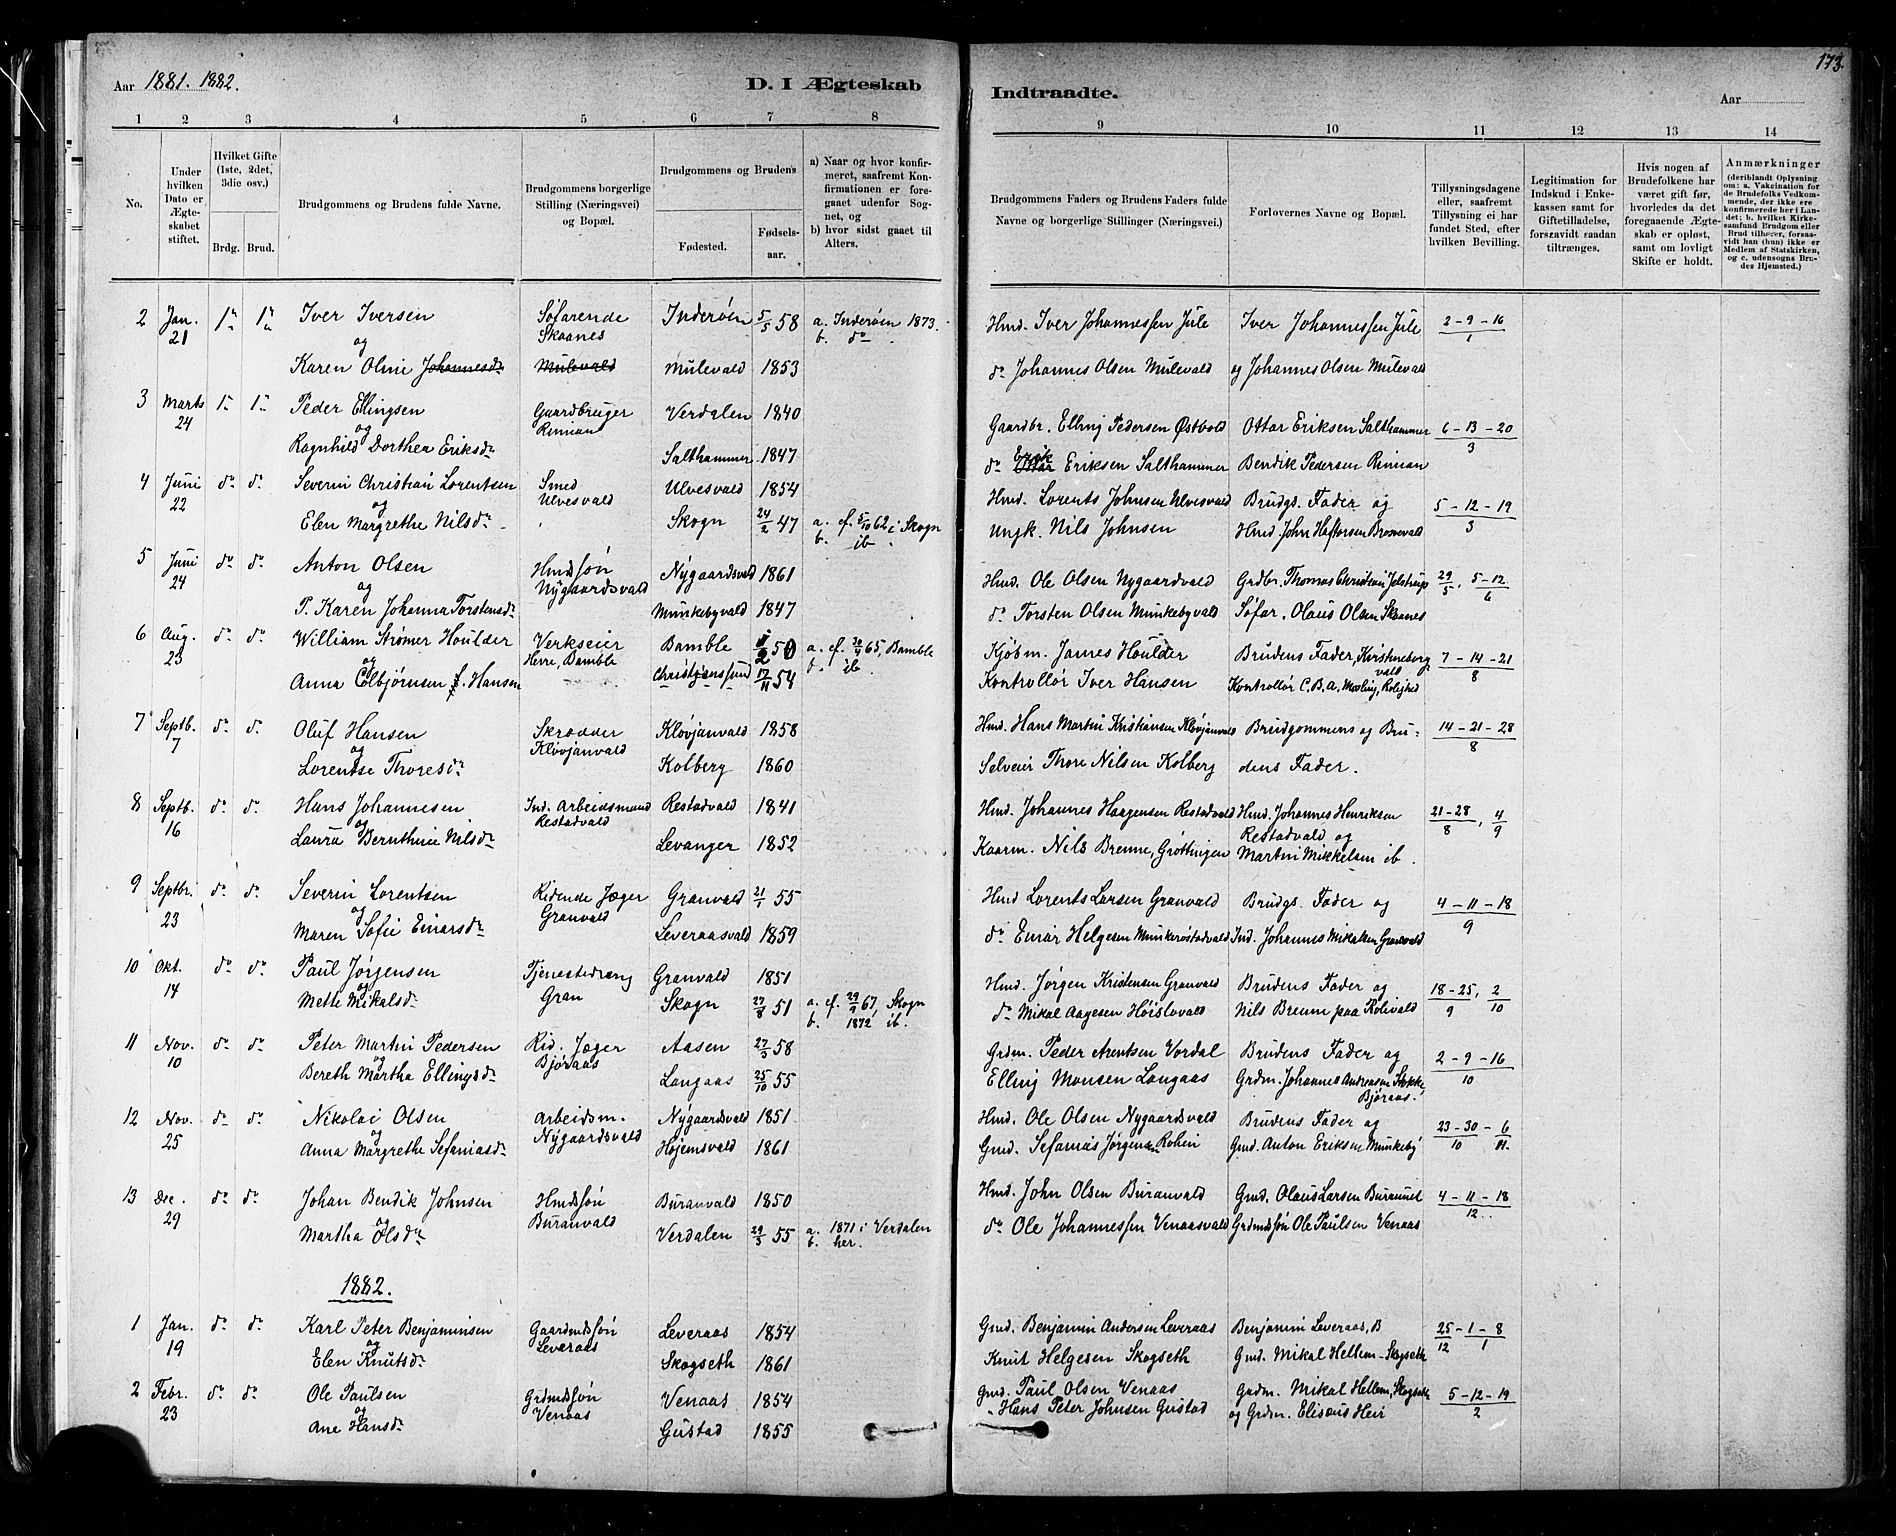 Aar 1881. 1882.
D. I Ægteskab
Indtraadte.
Aar
173.
1 2 3 4 5 6 7 8 9 10 11 12 13 14
No.
Under hvilken Dato er Ægteskabet stiftet.
Hvilket Gifte (1ste, 2det, 3die osv.)
Brdg. Brud.
Brudgommens og Brudens fulde Navne.
Brudgommens borgerlige Stilling (Næringsvei) og Bopæl.
Brudgommens og Brudens
Fødested. Fødselsaar.
a) Naar og hvor konfirmeret, saafremt Konfirmationen er foregaaet udenfor Sognet, og
b) hvor sidst gaaet til Alters.
Brudgommens Faders og Brudens Faders fulde Navne og borgerlige Stillinger (Næringsvei.)
Forlovernes Navne og Bopæl.
Tillysningsdagene eller, saafremt Tillysning ei har fundet Sted, efter hvilken Bevilling.
Legitimation for Indskud i Enkekassen samt for Giftetilladelse, forsaavidt saadan tiltrænges.
Hvis nogen af Brudefolkene har været gift før, hvorledes da det foregaaende Ægteskab er opløst, samt om lovligt Skifte er holdt.
Anmærkninger (deriblandt Oplysning om: a. Vakcination for de Brudefolks Vedkommende, der ikke ere konfirmerede her i Landet; b. hvilket Kirkesamfund Brudgom eller Brud tilhører, forsaavidt han (hun) ikke er Medlem af Statskirken, og c. udensogns Brudes Hjemsted.)
2 Jan. 21 1ª 1ª Iver Iversen Søfarende Skaanes Inderøen 5/5 58 a. Inderøen 1873. b. dº Hmd. Iver Johannessen Jule Iver Johannessen Jule 2-9-16/1
og
Karen Oline Johannesdr Mulevald Mulevald 1853 dº Johannes Olsen Mulevald og Johannes Olsen Mulevald
3 Marts 24 1ª 1ª Peder Ellingsen Gaardbruger Rinnan Verdalen 1840 Gaardbr. Elling Pedersen Østvold Ottar Eriksen Salthammer 6-13-20/3
og
Ragnhild Dorthea Eriksdr Salthammer 1847 dº Ottar Erik Eriksen Salthammer Bendik Pedersen Rinnan
4 Juni 22 dº dº Severin Christian Lorentsen Smed Ulvesvald Ulvesvald 1854 Hmd. Lorents Johnsen Ulvesvald Brudgs. Fader og 5-12-19/3
og
Elen Margrethe Nilsdr Skogn 24/2 47 a. cf. 5/10 62 i Skogn b. ib Ungk. Nils Johnsen Hmd. John Haftorsen Brennevald
5 Juni 24 dº dº Anton Olsen Hmdssøn Nygaardsvald Nygaardsvald 1861 Hmd. Ole Olsen Nygaardvald Grdbr. Thomas Christian Jelstrup 29/5, 5-12/6
og
P. Karen Johanna Torstensdr Munkebyvald 1847 dº Torsten Olsen Munkebyvald Søfar. Olaus Olsen Skaanes
6 Aug. 23 dº dº William Strømer Houlder Verkseier Herre, Bamble Bamble 1/2 50 a. cf. 30/4 65, Bamble b. ib. Kjøbm. James Houlder Brudens Fader, Kirsteneborg vald 7-14-21/8
og
Anna Colbjørnsen f. Hansen Christianssund 17/11 54 Kontrollør Iver Hansen Kontrollør C. B. A. Mosling, Rolighed
7 Septb. 7 dº dº Oluf Hansen Skrædder Kløvjanvald Kløvjanvald 1858 Hmd. Hans Martin Kristiansen Kløvjanvald Brudgommens og Bru- 14-21-28/8
og
Lorentse Thoresdr Kolberg 1860 Selveier Thore Nilsen Kolberg dens Fader.
8 Septb. 16 dº dº Hans Johannesen Ind. Arbeidsmand Restadvald Restadvald 1841 Hmd. Johannes Haagensen Restadvald Hmd. Johannes Henriksen 21-28/8, 4/9
og
Laura Bernthine Nilsdr Levanger 1852 Kaarm. Nils Brenne, Grøttingen Restadvald og Martin Mikkelsen ib.
9 Septbr. 23 dº dº Severin Lorentsen Ridende Jæger Granvald Granvald 21/1 55 Hmd Lorents Larsen Granvald Brudgs. Fader og 4-11-18/9
og
Maren Sofie Einarsdr Leveraasvald 1859 dº Einar Helgesen Munkerøstadvald Ind. Johannes Mikalsen Granvald
10 Okt. 14 dº dº Paul Jørgensen Tjenestedreng Gran Granvald 1851 Hmd. Jørgen Kristensen Granvald Brudens Fader og 18-25/9, 2/10
og
Mette Mikalsdr Skogn 27/8 51 a. cf. 29/9 67, Skogn b. 1872 ib. dº Mikal Aagesen Høislovald Nils Brenn paa Rolivald
11 Nov. 10 dº dº Peter Martin Pedersen Rid. Jæger Bjøraas Aasen 27/3 58 Grdm. Peder Arentsen Vordal Brudens Fader og 2-9-16/10
og
Bereth Martha Ellingsdr Langaas 25/10 55 Elling Monsen Langaas Grdm. Johannes Andreasen Stokke, Bjøraas.
12 Nov. 25 dº dº Nikolai Olsen Arbeidsm. Nygaardsvald Nygaardsvald 1851. Hmd. Ole Olsen Nygaardsvald Brudens Fader og 23-30/10 - 6/11.
og
Anna Margrethe Sefaniasdr Højemsvald 1861 Gmd. Sefanias Jørgensen Rohein Gmd. Anton Eriksen Munkeby
13 Dec. 29 dº dº Johan Bendik Johnsen Hmdssøn Buranvald Buranvald 1850 Hmd. John Olsen Buranvald Gmd. Olaus Larsen Buraunet 4-11-18/12.
og
Martha Olsdr Verdalen 29/3 55 a. 1871 i Verdalen b. her. dº Ole Johannessen Venaasvald Grdmdssøn Ole Paulsen Venaas
1882.
1 Jan. 19 dº dº Karl Peter Benjaminsen Gaardmdssøn Leveraas Leveraas 1854 Gmd. Benjamin Andersen Leveraas Benjamin Leveraas, B 25/12 - 1-8/1
og
Elen Knutsdr Skogseth 1861 Knut Helgesen Skogseth Gmd. Mikal Hellem-Skogseth
2 Febr. 23 dº dº Ole Paulsen Grdmdssøn Venaas Venaas 1854 Gmd. Paul Olsen Venaas Grdm. Mikal Hellem, Skogseth 5-12-19/2
og
Ane Hansdr Gustad 1855 " Hans Peter Johnsen Gustad og Grdm. Elisæus Heir